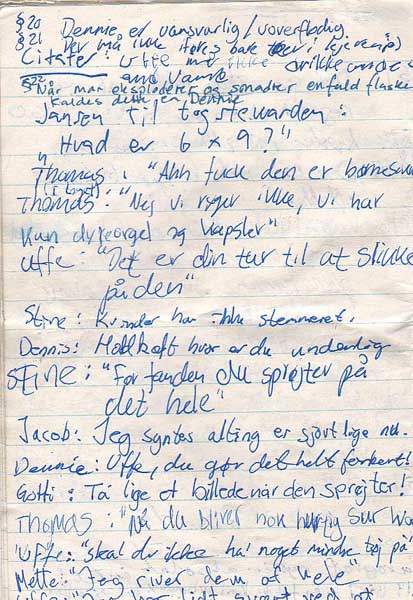 §20 Dennie er uansvarlig/uoverflødig.
§21 Der må ikke føres bare
Citater: Uffe må ikke drikke andre
end Vand
§22 Når man eksploderer og smadrer en fuld flaske
kaldes dette en Dennie
Jansen til togstewarden:
"Hvad er 6 x 9?"
Thomas: "Ahh fuck den er børnesikr
Thomas: (i toget) "Nej vi ryger ikke, vi har
kun dyreorgel og kapsler"
Uffe: "Det er din tur til at slikke
på den"
Stine: Kvinder har ikke stemmeret.
Dennis: Hold kæft hvor er du underlig
Stine: "For fanden du sprøjter på
det hele"
Jacob: Jeg syntes alting er sjovt lige nu.
Dennie: Uffe, du gør det helt forkert!
Gotti: Ta' lige et billede når den sprøjter!
Thomas: "Nå du bliver nok hurtig sur
Uffe: "skal du ikke ha' noget mindre tøj på"
Mette: "Jeg river dem af hele"
Uffe: "Jeg har lidt svært ved at